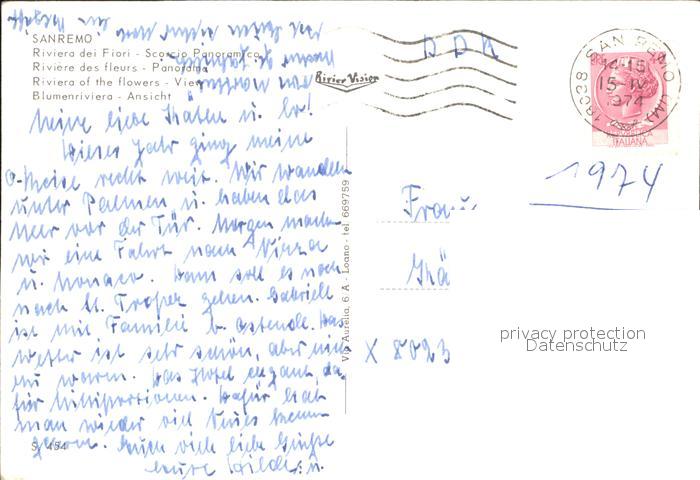 SANREMO
Riviera dei Fiori - Scorcio Panoramico
Rivière des fleurs - Panorama
Riviera of the flowers - View
Blumenriviera - Ansicht
Meine liebe Käten u. Lo!
Dieses Jahr ging meine
O-Reise recht weit. Wir wandeln
unter Palmen u. haben das
Meer vor der Tür. Morgen machen
wir eine Fahrt nach Nizza
u. Monaco. Dann soll es noch
nach St. Tropez gehen. Gabriele
ist mit Familie b. Ostende. Das
Wetter ist sehr schön, aber nicht
zu warm. Das Hotel elegant, da
für Miniportionen. Dafür hat
man wieder viel Neues kennen
gelernt. Euch viele liebe Grüße
Eure Hilde u.
S. 454
Rivier Vision
Via Aurelia, 6 A - Loano - tel. 669759
DDR
18038 SAN REMO (IM)
14-15
15-IV
1974
ITALIANA
1974
Frau
Grä
X 8023
privacy protection
Datenschutz